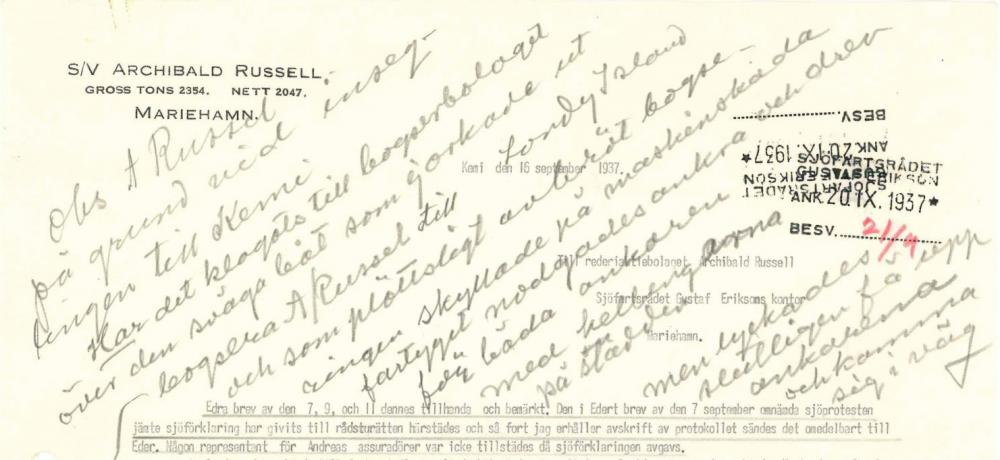 S/V ARCHIBALD RUSSELL.
GROSS TONS 2354. NETT 2047.
MARIEHAMN.
Kemi den 16 september 1937.
BESV.
ANK. 20. IX. 1937 *
SJÖFARTSRÅDET
GUSTAF ERIKSON
ANK. 20. IX. 1937 *
BESV. 21/9
Till rederiaktiebolaget Archibald Russell
Sjöfartsrådet Gustaf Eriksons kontor
Mariehamn.
Obs A Russel
på grund vid inseg-
lingen till Kemi
Har det klagats till bogserbolaget
över den svaga båt som
bogsera A Russel till Lundy Island
och som plötsligt avbröt bogse-
ringen skyllade på maskinskada
fartyget nödgades ankra och drev
för båda ankaren
med helbeng
på städden
men lyckades
slutligen få upp
ankarena
och komma
sig i väg
Edra brev av den 7, 9, och 11 dennes tillhanda och bemärkt. Den i Edert brev av den 7 september omnämda sjöprotesten
jämte sjöförklaring har givits till rådsturätten härstädes och så fort jag erhåller avskrift av protokollet sändes det omedelbart till
Eder. Någon representant för Andreas assuradörer var icke tillstädes då sjöförklaringen avgavs.